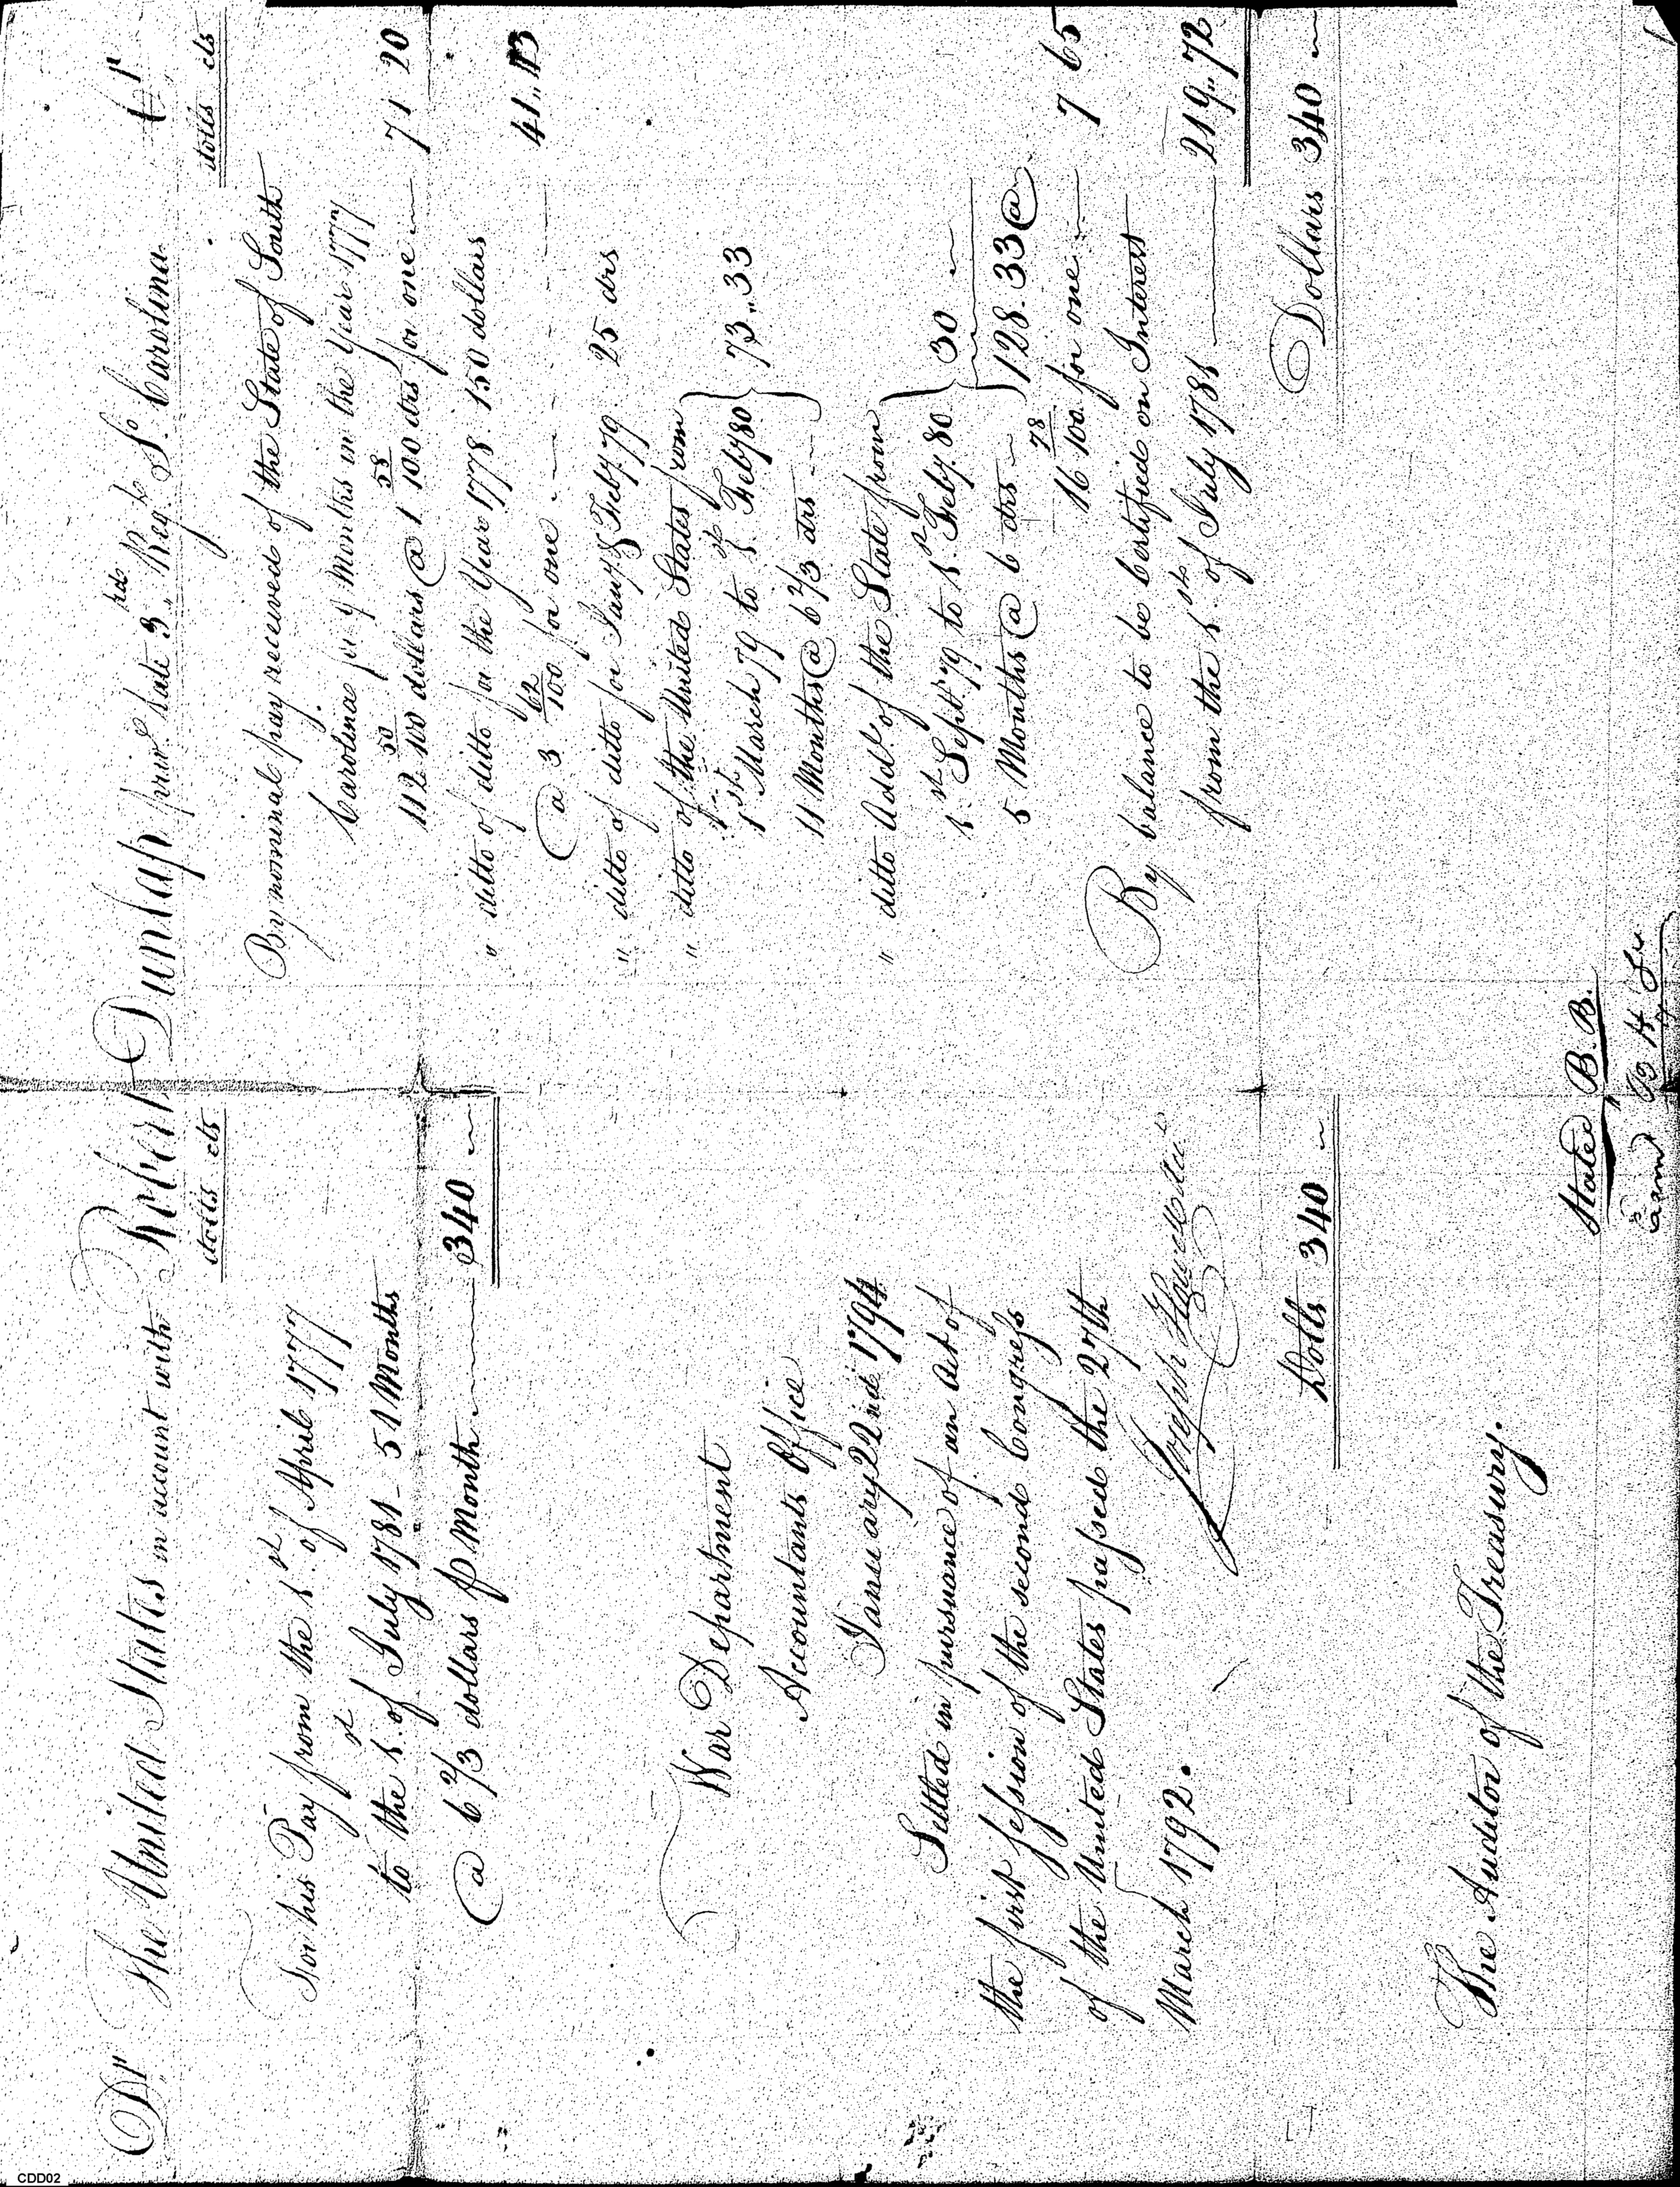 Dr The United States in account with Robert Dunlap priv. late 3rd Regt. So. Carolina Cr
dolls cts
For his Pay from the 1st of April 1777
to the 1st of July 1781 - 51 Months
@ 6 2/3 dollars p Month 340
War Department
Accountants Office
January 22nd 1794
Settled in pursuance of an Act of
the first session of the second Congress
of the United States passed the 27th
March 1792.
Joseph Howell
Dolls 340
The Auditor of the Treasury.
dolls cts
By nominal pay received of the State of South
Carolina for 9 Months in the Year 1777
112 50/100 dollars @ 1 58/100 drs for one 71 20
" ditto of ditto for the Year 1778. 150 dollars
@ 3 62/100 for one 41..
" ditto of ditto for Jany & Feby 79. 25 drs
" ditto of the United States from
1st March 79 to 1st Feby 80
11 Months @ 6 2/3 drs 73..33
" ditto Addl of the State from
1st Sept. 79 to 1st Feby. 80
5 Months @ 6 drs 30
128.33 @
16 78/100 for one 7 65
By balance to be Certified on Interest
from the 1st of July 1781 219..72
Dollars 340
Stated B.B.
CDD02